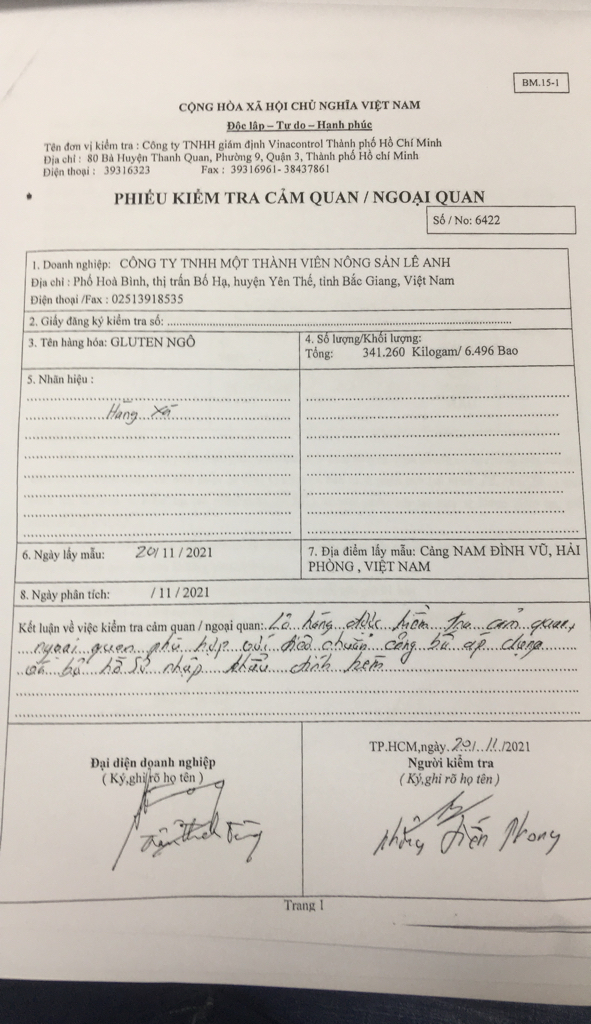 BM.15-1
CỘNG HÒA XÃ HỘI CHỦ NGHĨA VIỆT NAM
Độc lập – Tự do – Hạnh phúc
Tên đơn vị kiểm tra : Công ty TNHH giám định Vinacontrol Thành phố Hồ Chí Minh
Địa chỉ : 80 Bà Huyện Thanh Quan, Phường 9, Quận 3, Thành phố Hồ Chí Minh
Điện thoại : 39316323 Fax : 39316961- 38437861
PHIẾU KIỂM TRA CẢM QUAN / NGOẠI QUAN
Số / No: 6422
1. Doanh nghiệp: CÔNG TY TNHH MỘT THÀNH VIÊN NÔNG SẢN LÊ ANH
Địa chỉ : Phố Hoà Bình, thị trấn Bố Hạ, huyện Yên Thế, tỉnh Bắc Giang, Việt Nam
Điện thoại /Fax : 02513918535
2. Giấy đăng ký kiểm tra số:
3. Tên hàng hóa: GLUTEN NGÔ
4. Số lượng/Khối lượng:
Tổng: 341.260 Kilogam/ 6.496 Bao
5. Nhãn hiệu :
Hàng xá
6. Ngày lấy mẫu: 20/ 11 / 2021
7. Địa điểm lấy mẫu: Cảng NAM ĐÌNH VŨ, HẢI
PHÒNG , VIỆT NAM
8. Ngày phân tích: / 11 / 2021
Kết luận về việc kiểm tra cảm quan / ngoại quan: Lô hàng được kiểm tra cảm quan,
ngoại quan phù hợp với tiêu chuẩn công bố áp dụng
và bộ hồ sơ nhập khẩu đính kèm
Đại diện doanh nghiệp
( Ký,ghi rõ họ tên )
TP.HCM,ngày 20/ 11 /2021
Người kiểm tra
( Ký,ghi rõ họ tên )
Tiến Phong
Trang 1